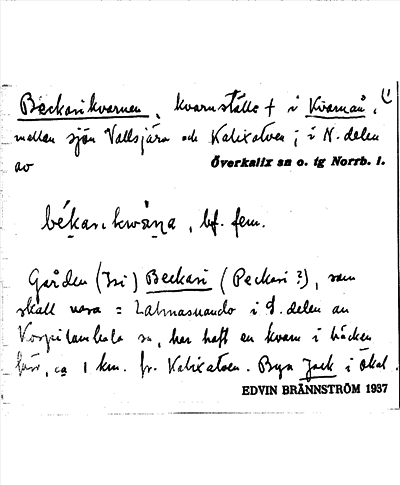 Beckarikvarnen, kvarnställe † i Kvarnån, 1)
mellan sjön Vallsjärv och Kalixälven; i N. delen
av Överkalix sn o. tg Norrb. l.
békarıkwàṇa, bf. fem.
Gården (Isi) Beckari (Peckari?), som
skall vara = Lahnasuando i S. delen av
Korpilombolo sn, har haft en kvarn i bäcken
här, ca 1 km. fr. Kalixälven. Byn Jock i Ökal.
EDVIN BRÄNNSTRÖM 1937